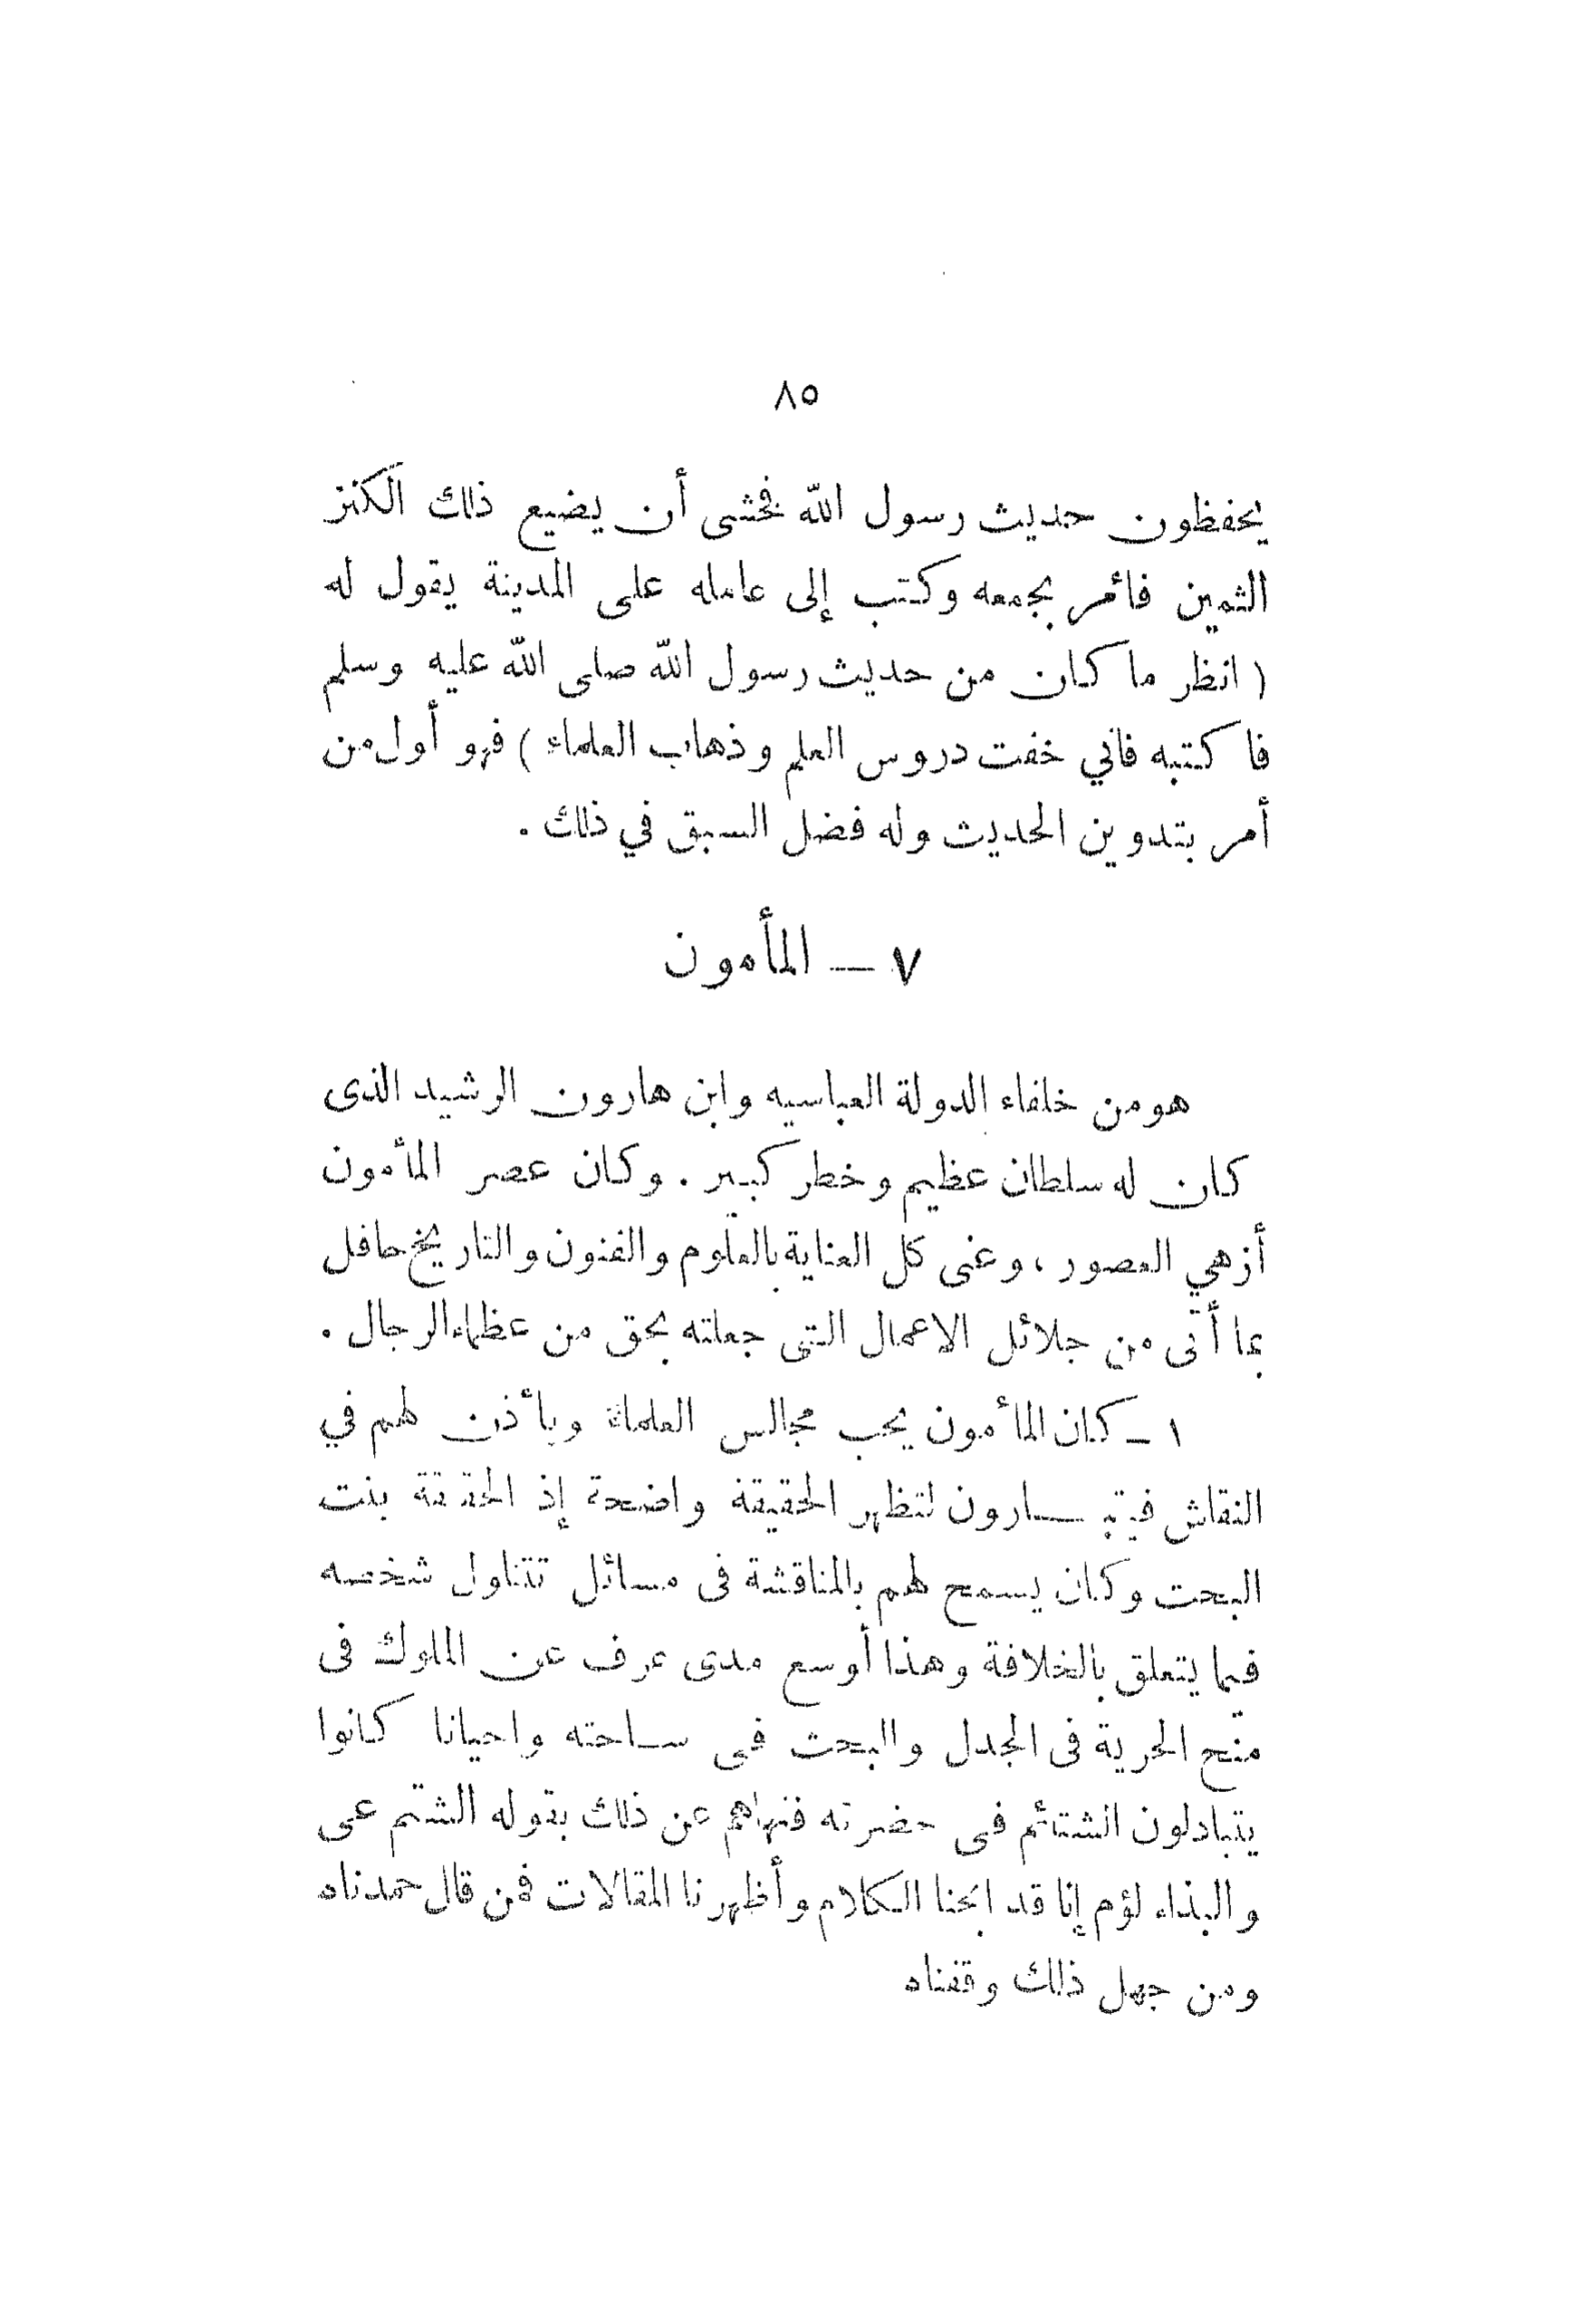 ٨٥
يحفظون حديث رسول الله فخشى أن يضيع ذلك الكنز
الثمين فأمر بجمعه وكتب إلى عامله على المدينة يقول له
( انظر ما كان من حديث رسول الله صلى الله عليه وسلم
فاكتبه فاني خفت دروس العلم وذهاب العلماء ) فهو أول من
أمر بتدوين الحديث وله فضل السبق في ذلك .
٧ — المأمون
هو من خلفاء الدولة العباسيه وابن هارون الرشيد الذى
كان له سلطان عظيم وخطر كبير . وكان عصر المأمون
أزهي العصور ، وعنى كل العناية بالعلوم والفنون والتاريخ حافل
بما أتى من جلائل الاعمال التى جعلته بحق من عظماء الرجال .
١ — كان المأمون يحب مجالس العلماء ويأذن لهم في
النقاش فيتبارون لتظهر الحقيقة واضحة إذ الحقيقة بنت
البحت وكان يسمح لهم بالمناقشة فى مسائل تتناول شخصه
فيما يتعلق بالخلافة وهذا أوسع مدى عرف عن الملوك فى
منح الحرية فى الجدل والبحث فى ساحته واحيانا كانوا
يتبادلون الشتائم فى حضرته فنهاهم عن ذلك بقوله الشتم عى
والبذاء لؤم إنا قد ابحنا الكلام وأظهرنا المقالات فمن قال حمدناه
ومن جهل ذلك وقفناه